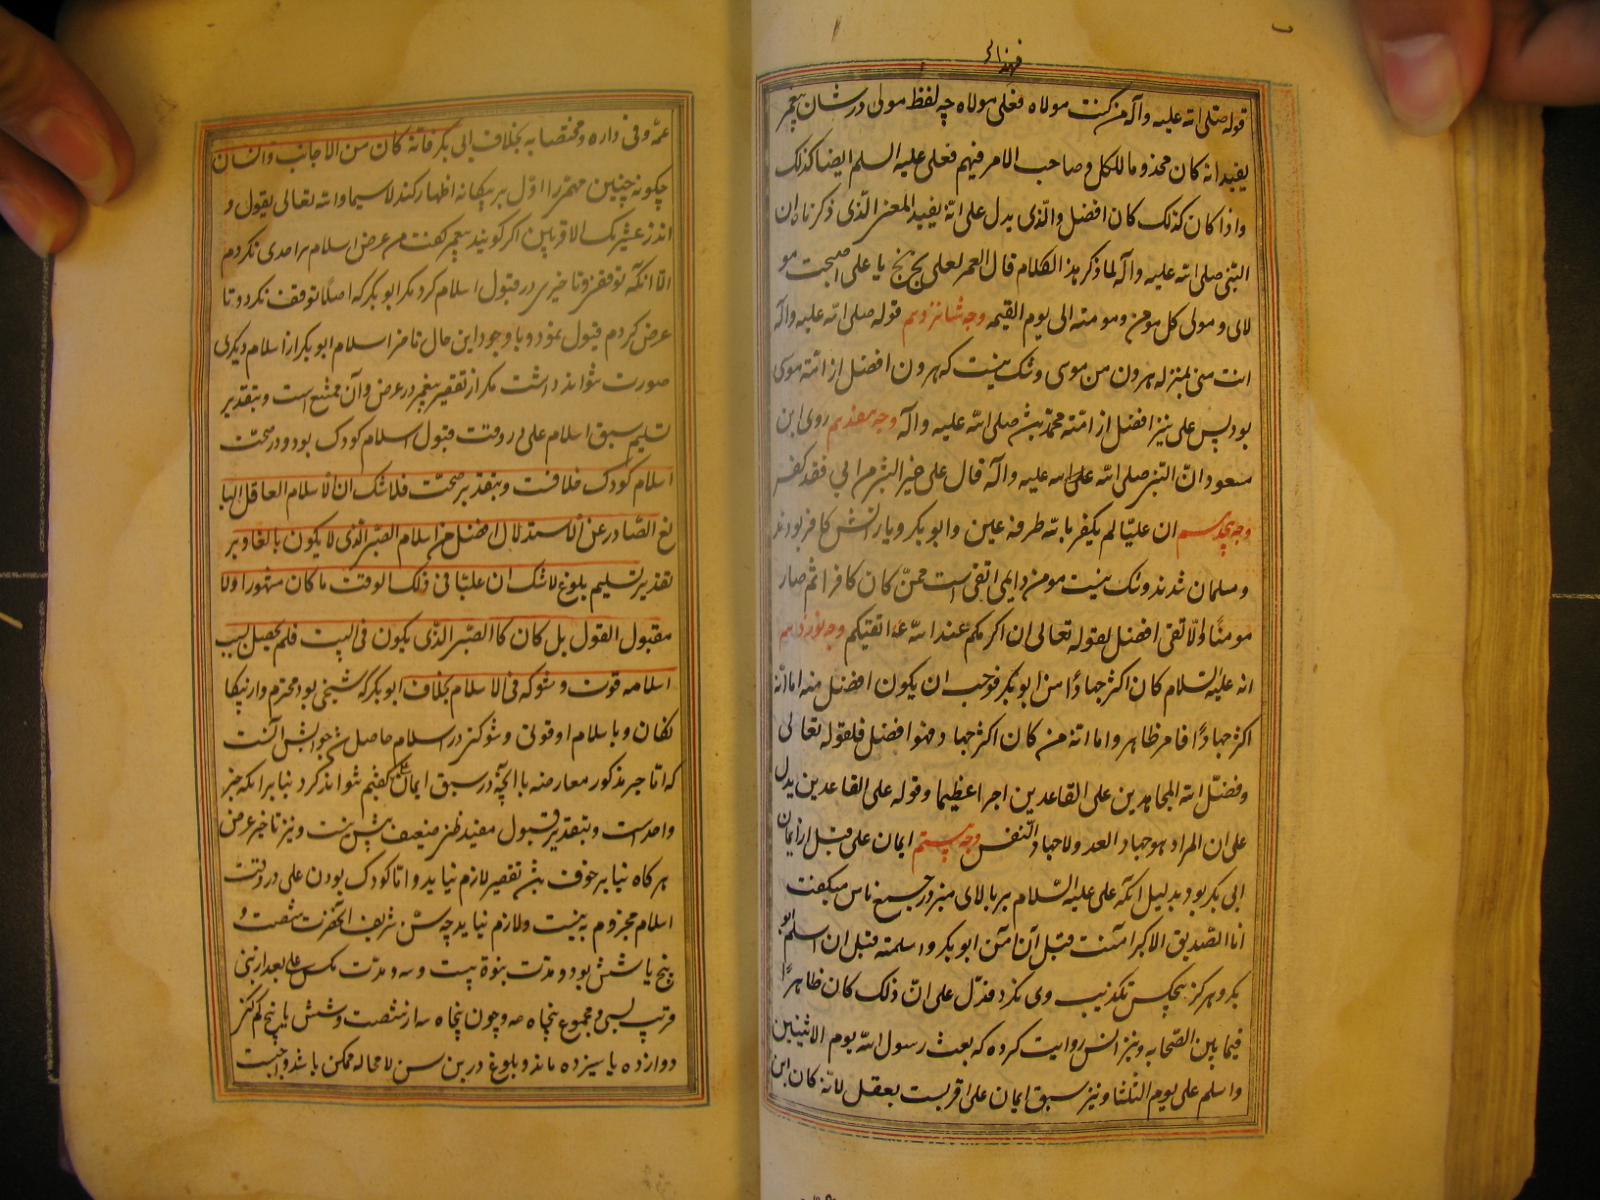 قوله صلی الله علیه وآله من کنت مولاه فعلی مولاه چه لفظ مولی در شان پیغمبر
یفید انه کان مخدوما للکل و صاحب الامر فیهم فعلی علیه السلم ایضا کذلک
و اذا کان کذلک کان افضل والّذی یدل علی انّه یفید المعنی الّذی ذکرناه ان
النبی صلی الله علیه وآله لما ذکر هذا الکلام قال العمر لعلی بخ بخ یا علی اصبحت مو
لای و مولی کل مومن ومومنه الی یوم القیمه وجه شانزدهم قوله صلی الله علیه وآله
انت منی بمنزله هرون من موسی و شک نیست که هرون افضل از امّته موسی
بود پس علی نیز افضل از امّته محمّد بیش صلی الله علیه وآله وجه هفدهم روی ابن
مسعود انّ النبی صلی الله علیه وآله قال علی خیر البشر من ابی فقد کفر
وجه هیجدهم ان علیّا لم یکفر بالله طرفه عین وابو بکر و یارانش کافر بودند
و مسلمان شدند و شک نیست مومن دایمی اتقی است ممّن کان کافرا ثم صار
مومنًا والاتقی افضل لقوله تعالی ان اکرمکم عند الله اتقیکم وجه نوزدهم
انه علیه السّلام کان اکثر جهادًا من ابو بکر فوجب ان یکون افضل منه اما انّه
اکثر جهادًا فامر ظاهر و اما انّه من کان اکثر جهاد فهو افضل فلقوله تعالی
و فضّل الله المجاهدین علی القاعدین اجرا عظیما وقوله علی القاعدین یدل
علی ان المراد هو جهاد العدو لا جهاد النّفس وجه بیستم ایمان علی قبل از ایمان
ابی بکر بود بدلیل آنکه علی علیه السّلام بر بالای منبر در جمیع ناس میگفت
انا الصّدیق الاکبر امنت قبل ان آمن ابو بکر و اسلمت قبل ان اسلم ابو
بکر و هرگز هیچکس تکذیب وی نکرد فدّل علی انّ ذلک کان ظاهرًا
فیما بین الصّحابه و نیز انس روایت کرده که بعث رسول الله یوم الاثنین
و اسلم علی یوم الثلثا و نیز سبق ایمان علی اقربست بعقل لانّه کان ابن
عمّه و فی داره و مختصا به بخلاف ابی بکر فانّه کان من الاجانب و انسان
چگونه چنین مهمّ را اوّل بر بیگانه اظهار کند لا سیما والله تعالی یقول و
انذر عشیرتک الاقربین اگر گویند پیغمبر گفت من عرض اسلام بر احدی نکردم
الّا آنکه توقفی و تاخیری در قبول اسلام کرد مگر ابو بکر که اصلًا توقف نکرد و تا
عرض کردم قبول نمود و با وجود این حال تاخر اسلام ابو بکر از اسلام دیگری
صورت نتواند داشت مگر از تقصیر پیغمبر در عرض و آن ممتنع است و بتقدیر
تسلیم سبق اسلام علی در وقت قبول اسلام کودک بود و در صحّت
اسلام کودک خلافست و بتقدیر صحّت فلا شک ان الاسلام العاقل البا
لغ الصّادر عن الاستدلال افضل من اسلام الصّبی الّذی لا یکون بالغا و بر
تقدیر تسلیم بلوغ لا شک ان علیّا فی ذلک الوقت ما کان مشهورا و لا
مقبول القول بل کان کالصّبی الذّی یکون فی البیت فلم یحصل بسبب
اسلامه قوت و شوکه فی الاسلام بخلاف ابو بکر که شیخی بود محترم و از بیگا
نگان و باسلام او قوتی و شوکتی در اسلام حاصل شد جوابش آنست
که امّا خبر مذکور معارضه با آنچه در سبق ایمان گفتیم نتواند کرد بنابر آنکه خبر
واحدست و بتقدیر قبول مفید ظنی ضعیف بیش نیست و نیز تاخیر عرض
هر گاه بنابر خوف بین تقصیر لازم نیاید و امّا کودک بودن علی در وقت
اسلام مجزوم به نیست و لازم نیاید چه سنّ شریف آنحضرت شصت و
پنج یا شش بود و مدّت نبوّة بیست و سه و مدّت مکس علی بعد از نبی
قریب بسی و مجموع پنجاه سه و چون پنجاه سه از شصت و شش یا پنج کم کنی
دوازده یا سیزده ماند و بلوغ در بن سن لا محاله ممکن باشد و اجبت